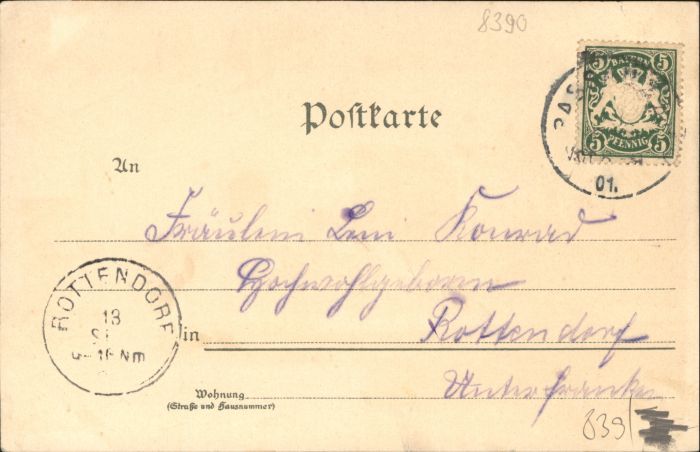 8390
BAYERN
5 5
5 PFENNIG 5
01.
Postkarte
An
Fräulein Leni Konrad
Hochwohlgeboren
ROTTENDORF
13
Nm
in Rottendorf
Unterfranken
Wohnung
(Straße und Hausnummer)
839